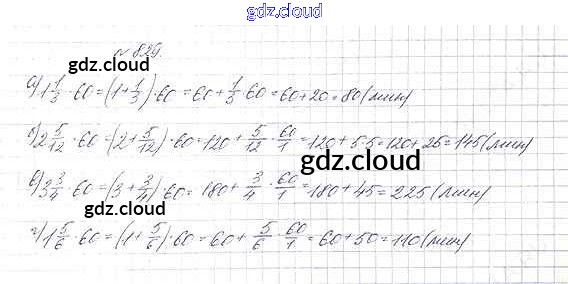 gdz.cloud
№ 829.
gdz.cloud
а) 1 1/3 · 60 = (1 + 1/3) · 60 = 60 + 1/3 · 60 = 60 + 20 = 80 (мин)
б) 2 5/12 · 60 = (2 + 5/12) · 60 = 120 + 5/12 · 60/1 = 120 + 5·5 = 120 + 25 = 145 (мин)
gdz.cloud
в) 3 3/4 · 60 = (3 + 3/4) · 60 = 180 + 3/4 · 60/1 = 180 + 45 = 225 (мин)
gdz.cloud
г) 1 5/6 · 60 = (1 + 5/6) · 60 = 60 + 5/6 · 60/1 = 60 + 50 = 110 (мин)
gdz.cloud